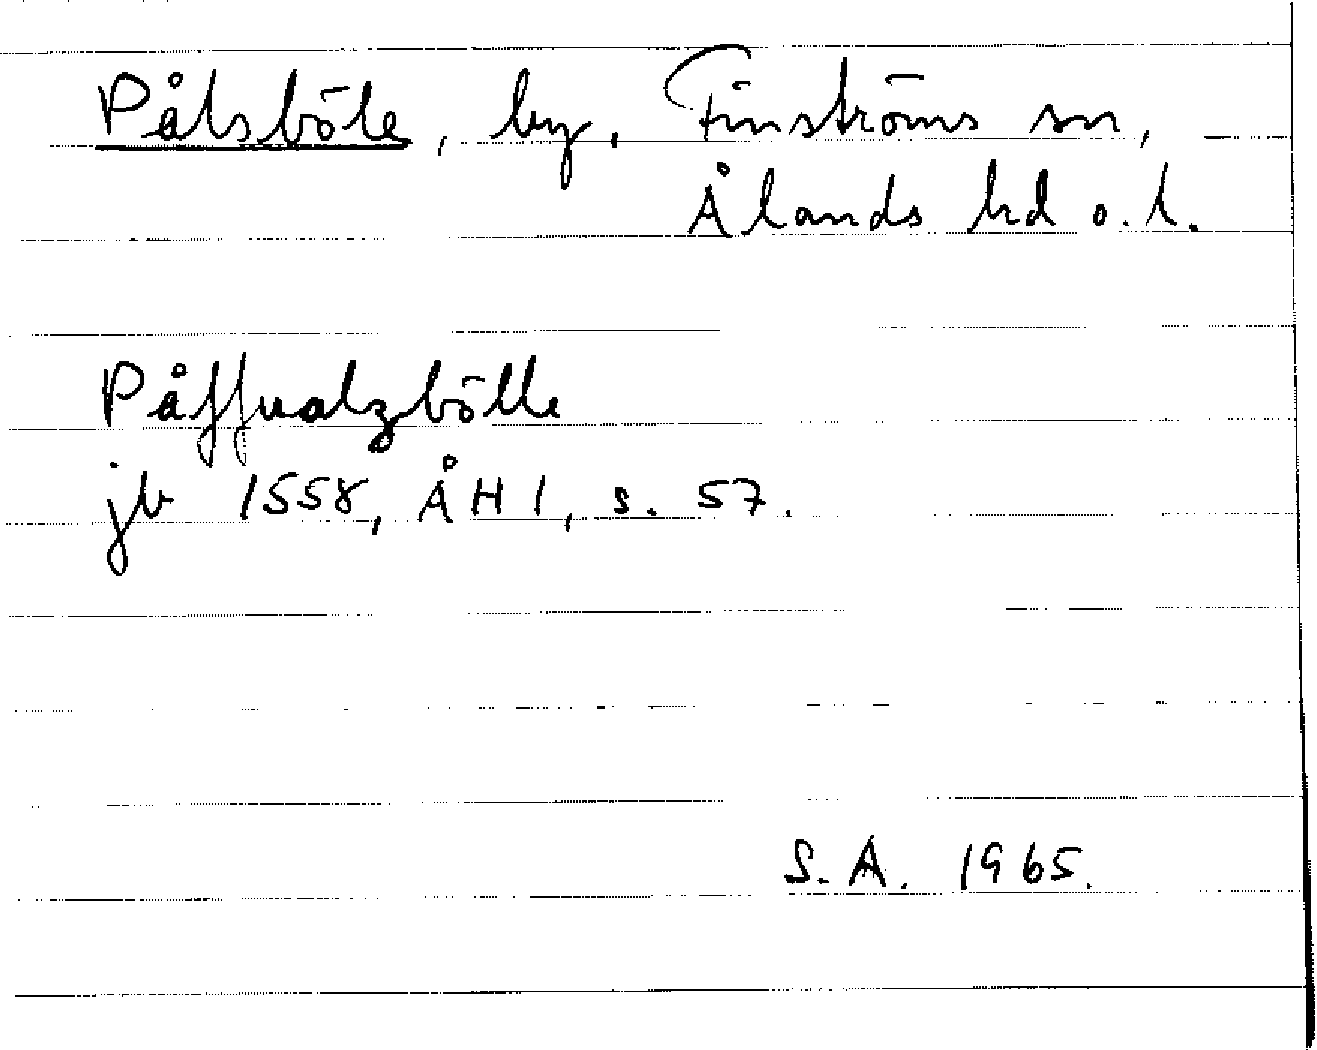 Pålsböle, by, Finströms sn,
Ålands hd o. l.
Påffualzbölle
jb 1558, ÅH I, s. 57.
S. A. 1965.